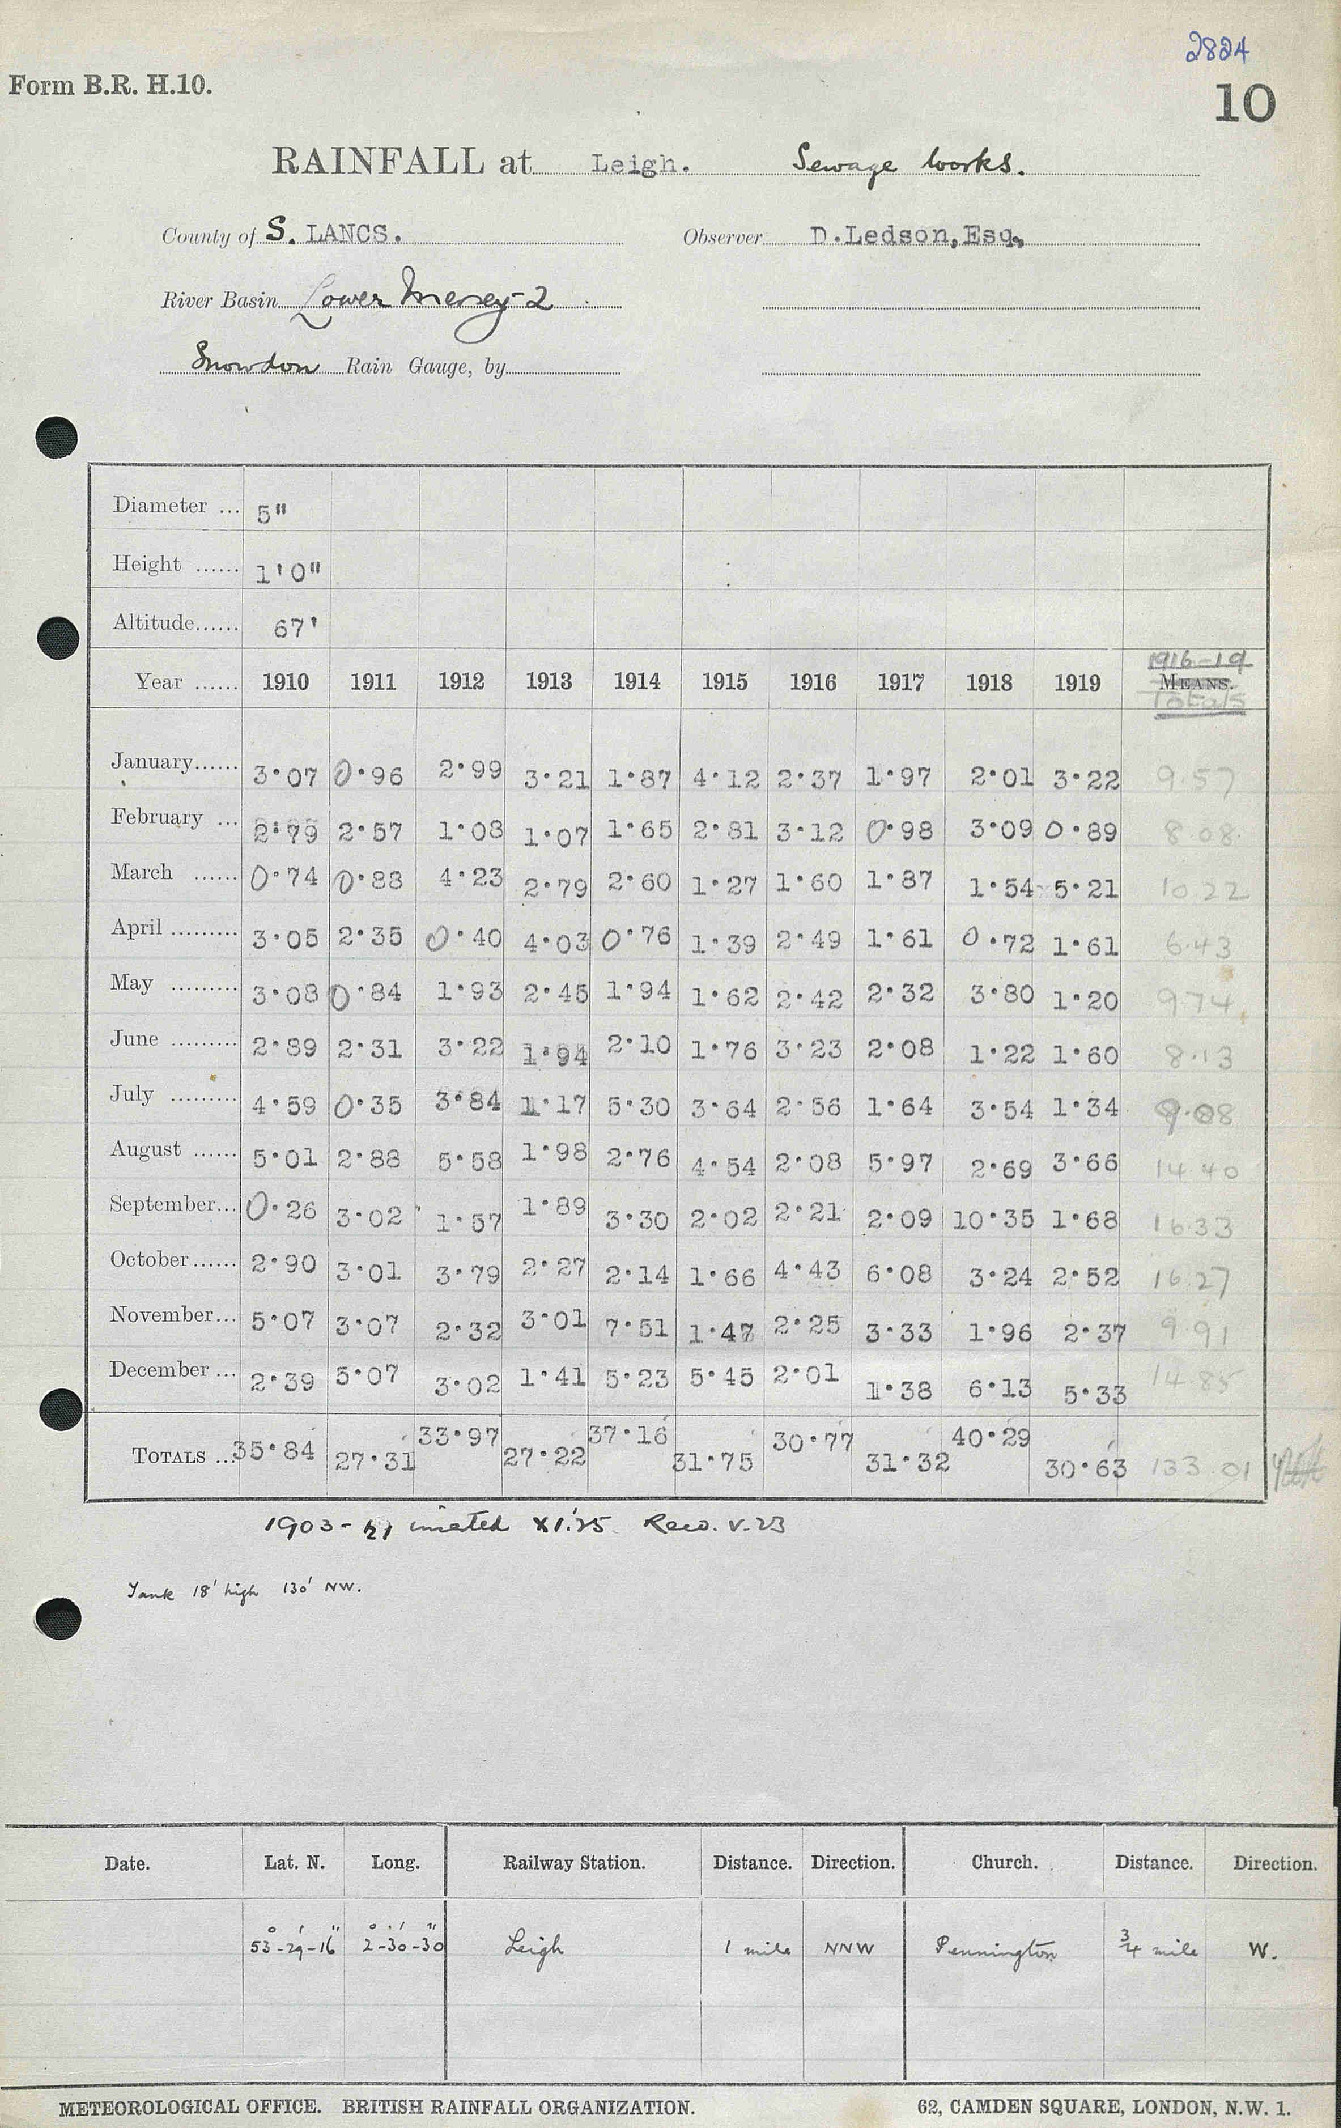 2824
Form B.R. H.10.
10
RAINFALL at Leigh. Sewage Works.
County of S. LANCS. Observer D.Ledson,Esq.
River Basin Lower Mersey-2
Snowdon Rain Gauge, by
Diameter ... 5"
Height ...... 1'0"
Altitude...... 67'
1916-19
Year ...... 1910 1911 1912 1913 1914 1915 1916 1917 1918 1919 MEANS.
Totals
January...... 3·07 0·96 2·99 3·21 1·87 4·12 2·37 1·97 2·01 3·22 9.57
February ... 2·79 2·57 1·08 1·07 1·65 2·81 3·12 0·98 3·09 0·89 8.08
March ...... 0·74 0·88 4·23 2·79 2·60 1·27 1·60 1·87 1·54 5·21 10.22
April ......... 3·05 2·35 0·40 4·03 0·76 1·39 2·49 1·61 0·72 1·61 6.43
May ......... 3·08 0·84 1·93 2·45 1·94 1·62 2·42 2·32 3·80 1·20 974
June ......... 2·89 2·31 3·22 1·94 2·10 1·76 3·23 2·08 1·22 1·60 8.13
July ......... 4·59 0·35 3·84 1·17 5·30 3·64 2·56 1·64 3·54 1·34 9.08
August ...... 5·01 2·88 5·58 1·98 2·76 4·54 2·08 5·97 2·69 3·66 14.40
September... 0·26 3·02 1·57 1·89 3·30 2·02 2·21 2·09 10·35 1·68 16.33
October...... 2·90 3·01 3·79 2·27 2·14 1·66 4·43 6·08 3·24 2·52 16.27
November... 5·07 3·07 2·32 3·01 7·51 1·47 2·25 3·33 1·96 2·37 9.91
December ... 2·39 5·07 3·02 1·41 5·23 5·45 2·01 1·38 6·13 5·33 14.85
TOTALS ... 35·84 27·31 33·97 27·22 37·16 31·75 30·77 31·32 40·29 30·63 133.01
1903- X1.25 V.23
Tank 18' high 130' NW.
Date. Lat. N. Long. Railway Station. Distance. Direction. Church. Distance. Direction.
53°-29'-16" 2°-30'-30" Leigh 1 mile NNW Pennington ¾ mile W.
METEOROLOGICAL OFFICE. BRITISH RAINFALL ORGANIZATION. 62, CAMDEN SQUARE, LONDON, N.W. 1.